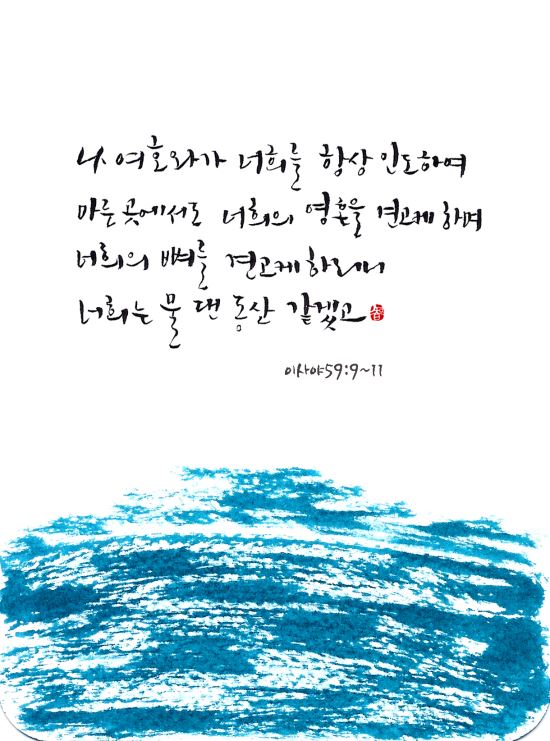 나 여호와가 너희를 항상 인도하여
마른 곳에서도 너희의 영혼을 견고케 하며
너희의 뼈를 견고케 하리니
너희는 물 댄 동산 같겠고
이사야59:9~11